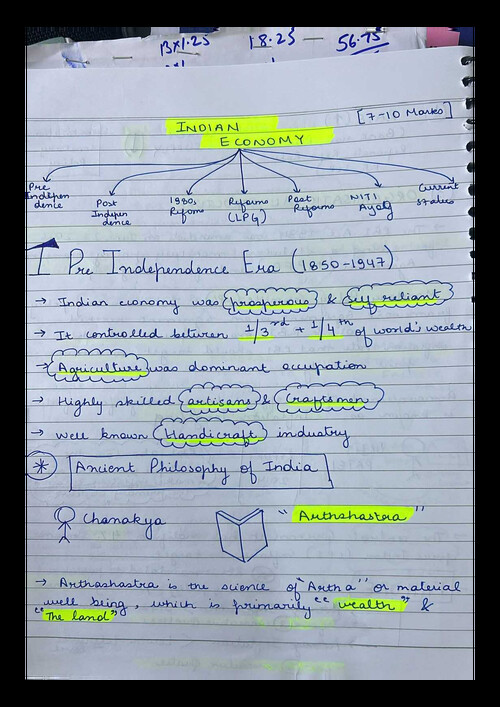 13x1.25 18.25 56.75
INDIAN [7-10 Marks]
ECONOMY
Pre Indepen dence
Post Indepen dence
1980, Reforms
Reforms (LPG)
Post Reforms
NITI Ayog
Current status
I Pre Independence Era (1850-1947)
→ Indian economy was prosperous & self reliant
→ It controlled between 1/3rd + 1/4th of world's wealth
→ Agriculture was dominant occupation
→ Highly skilled artisans & Craftsmen
→ Well known Handicraft industry
* Ancient Philosophy of India
Chanakya "Arthshastra"
→ Arthashastra is the science of "Artha" or material
well being, which is primarily "wealth" &
"The land"